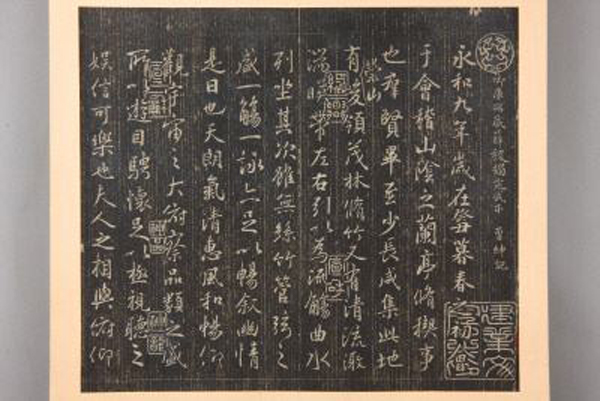 永和九年歲在癸丑暮春之
于會稽山陰之蘭亭脩禊事
也羣賢畢至少長咸集此地
有崇山峻領茂林脩竹又有清流激
湍暎帶左右引以為流觴曲水
列坐其次雖無絲竹管弦之
盛一觴一詠亦足以暢叙幽情
是日也天朗氣清惠風和暢仰
觀宇宙之大俯察品類之盛
所以遊目騁懷足以極視聽之
娛信可樂也夫人之相與俯仰